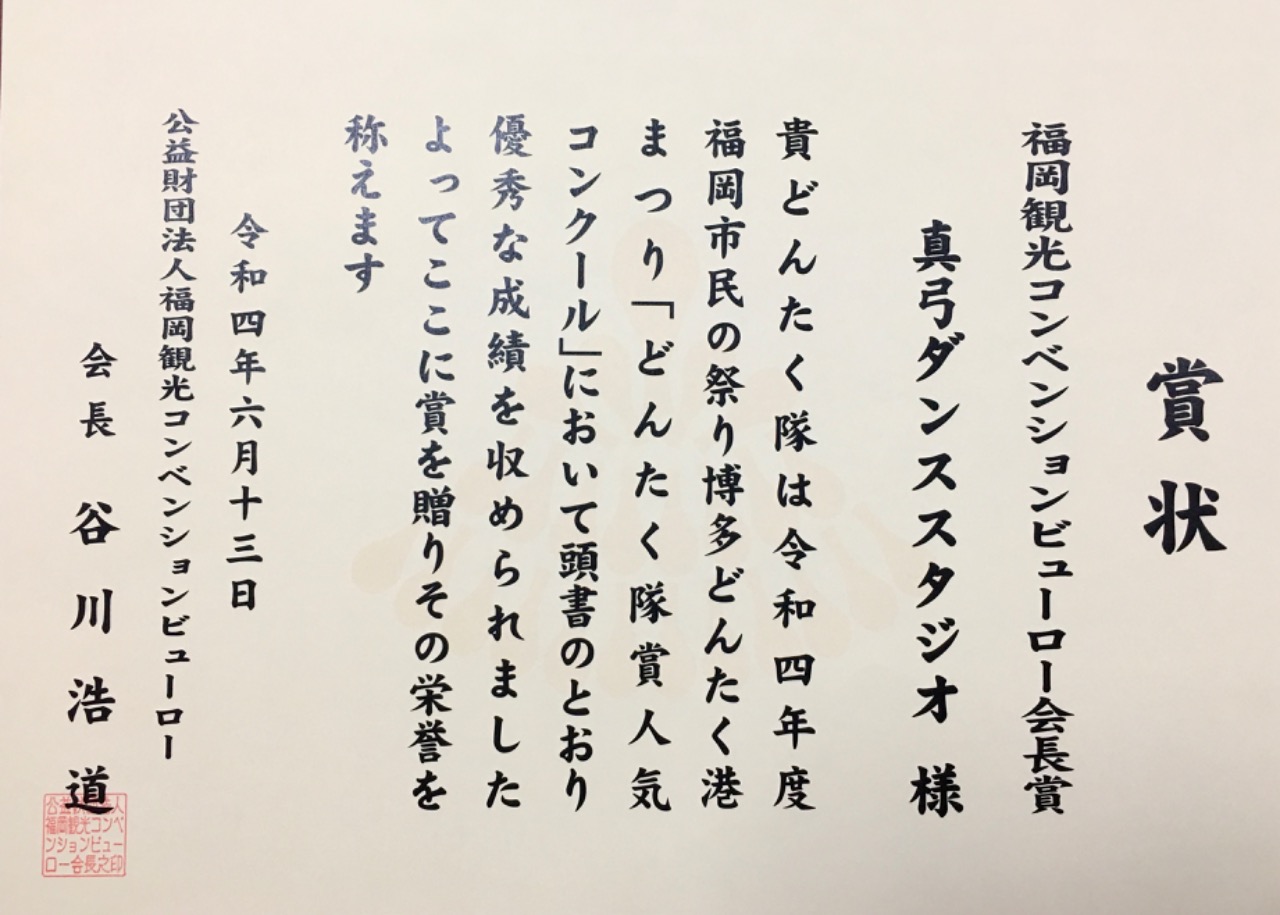 賞状
福岡観光コンベンションビューロー会長賞
真弓ダンススタジオ 様
貴どんたく隊は令和四年度
福岡市民の祭り博多どんたく港
まつり「どんたく隊賞人気
コンクール」において頭書のとおり
優秀な成績を収められました
よってここに賞を贈りその栄誉を
称えます
令和四年六月十三日
公益財団法人福岡観光コンベンションビューロー
会長 谷川浩道
公益財団法人
福岡観光コンベ
ンションビュー
ロー会長之印